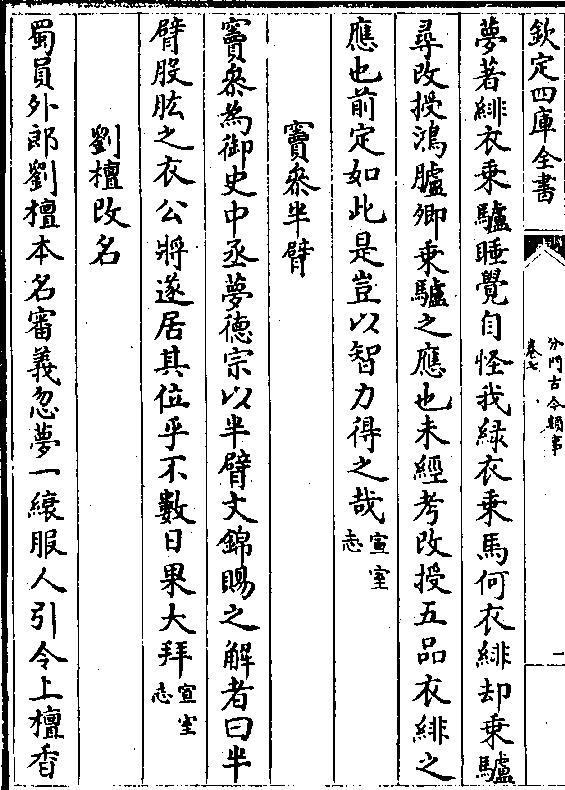 欽定四庫全書
分門古今類事
卷七
一
夢著緋衣乘驢睡覺自怪我緑衣乘馬何衣緋却乘驢
尋改授鴻臚卿乘驢之應也未經考改授五品衣緋之
應也前定如此是豈以智力得之哉宣室志
竇叅半臂
竇叅為御史中丞夢德宗以半臂文錦賜之解者曰半
臂股肱之衣公將遂居其位乎不數日果大拜宣室志
劉檀改名
蜀員外郎劉檀本名審義忽夢一縗服人引令上檀香